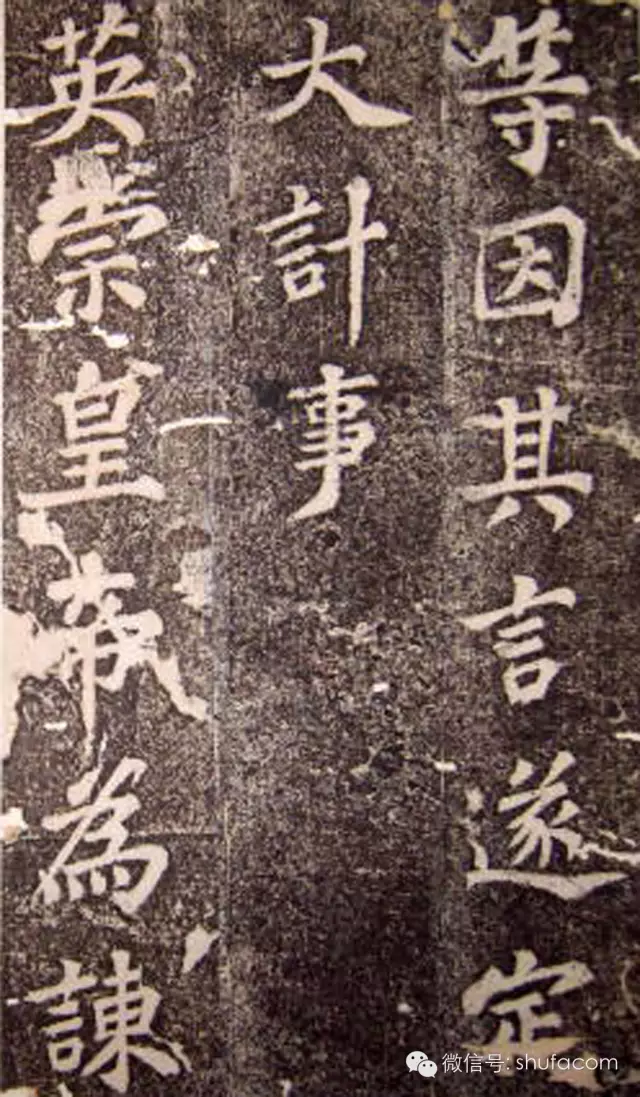 等因其言遂定
大計事
英崇皇帝為諫
微信号: shufacom